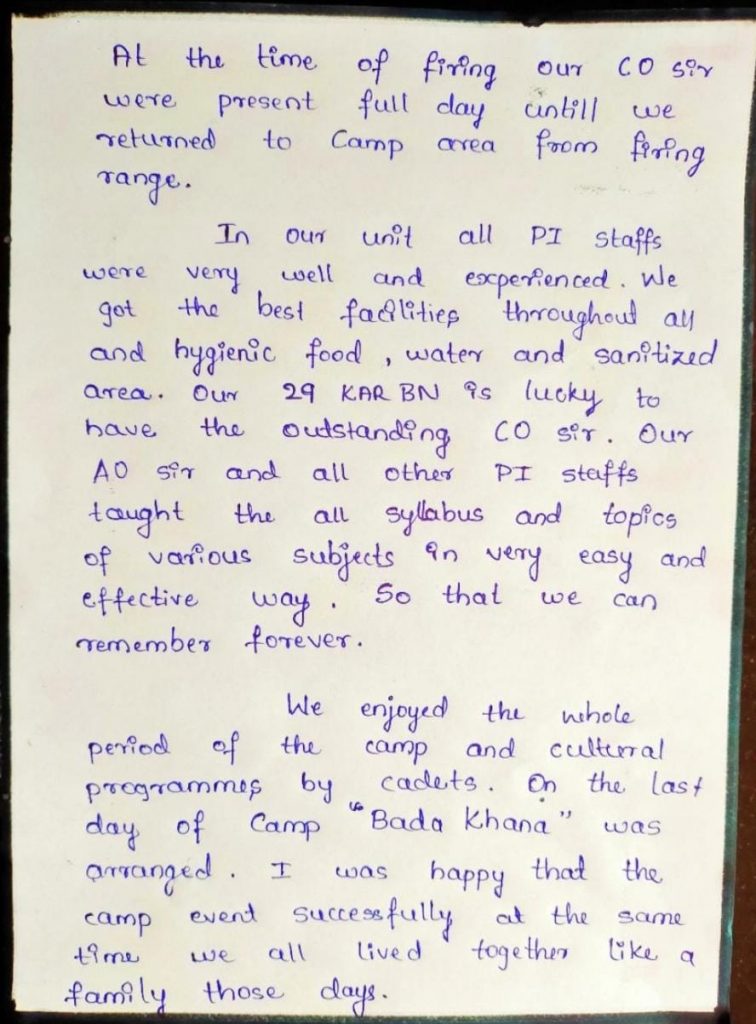 At the time of firing our CO sir
were present full day untill we
returned to Camp area from firing
range.
In our unit all PI staffs
were very well and experienced. We
got the best facilities throughout all
and hygienic food, water and sanitized
area. Our 29 KAR BN is lucky to
have the outstanding CO sir. Our
AO sir and all other PI staffs
taught the all syllabus and topics
of various subjects in very easy and
effective way. So that we can
remember forever.
We enjoyed the whole
period of the camp and cultural
programmes by cadets. On the last
day of Camp "Bada Khana" was
arranged. I was happy that the
camp event successfully at the same
time we all lived together like a
family those days.